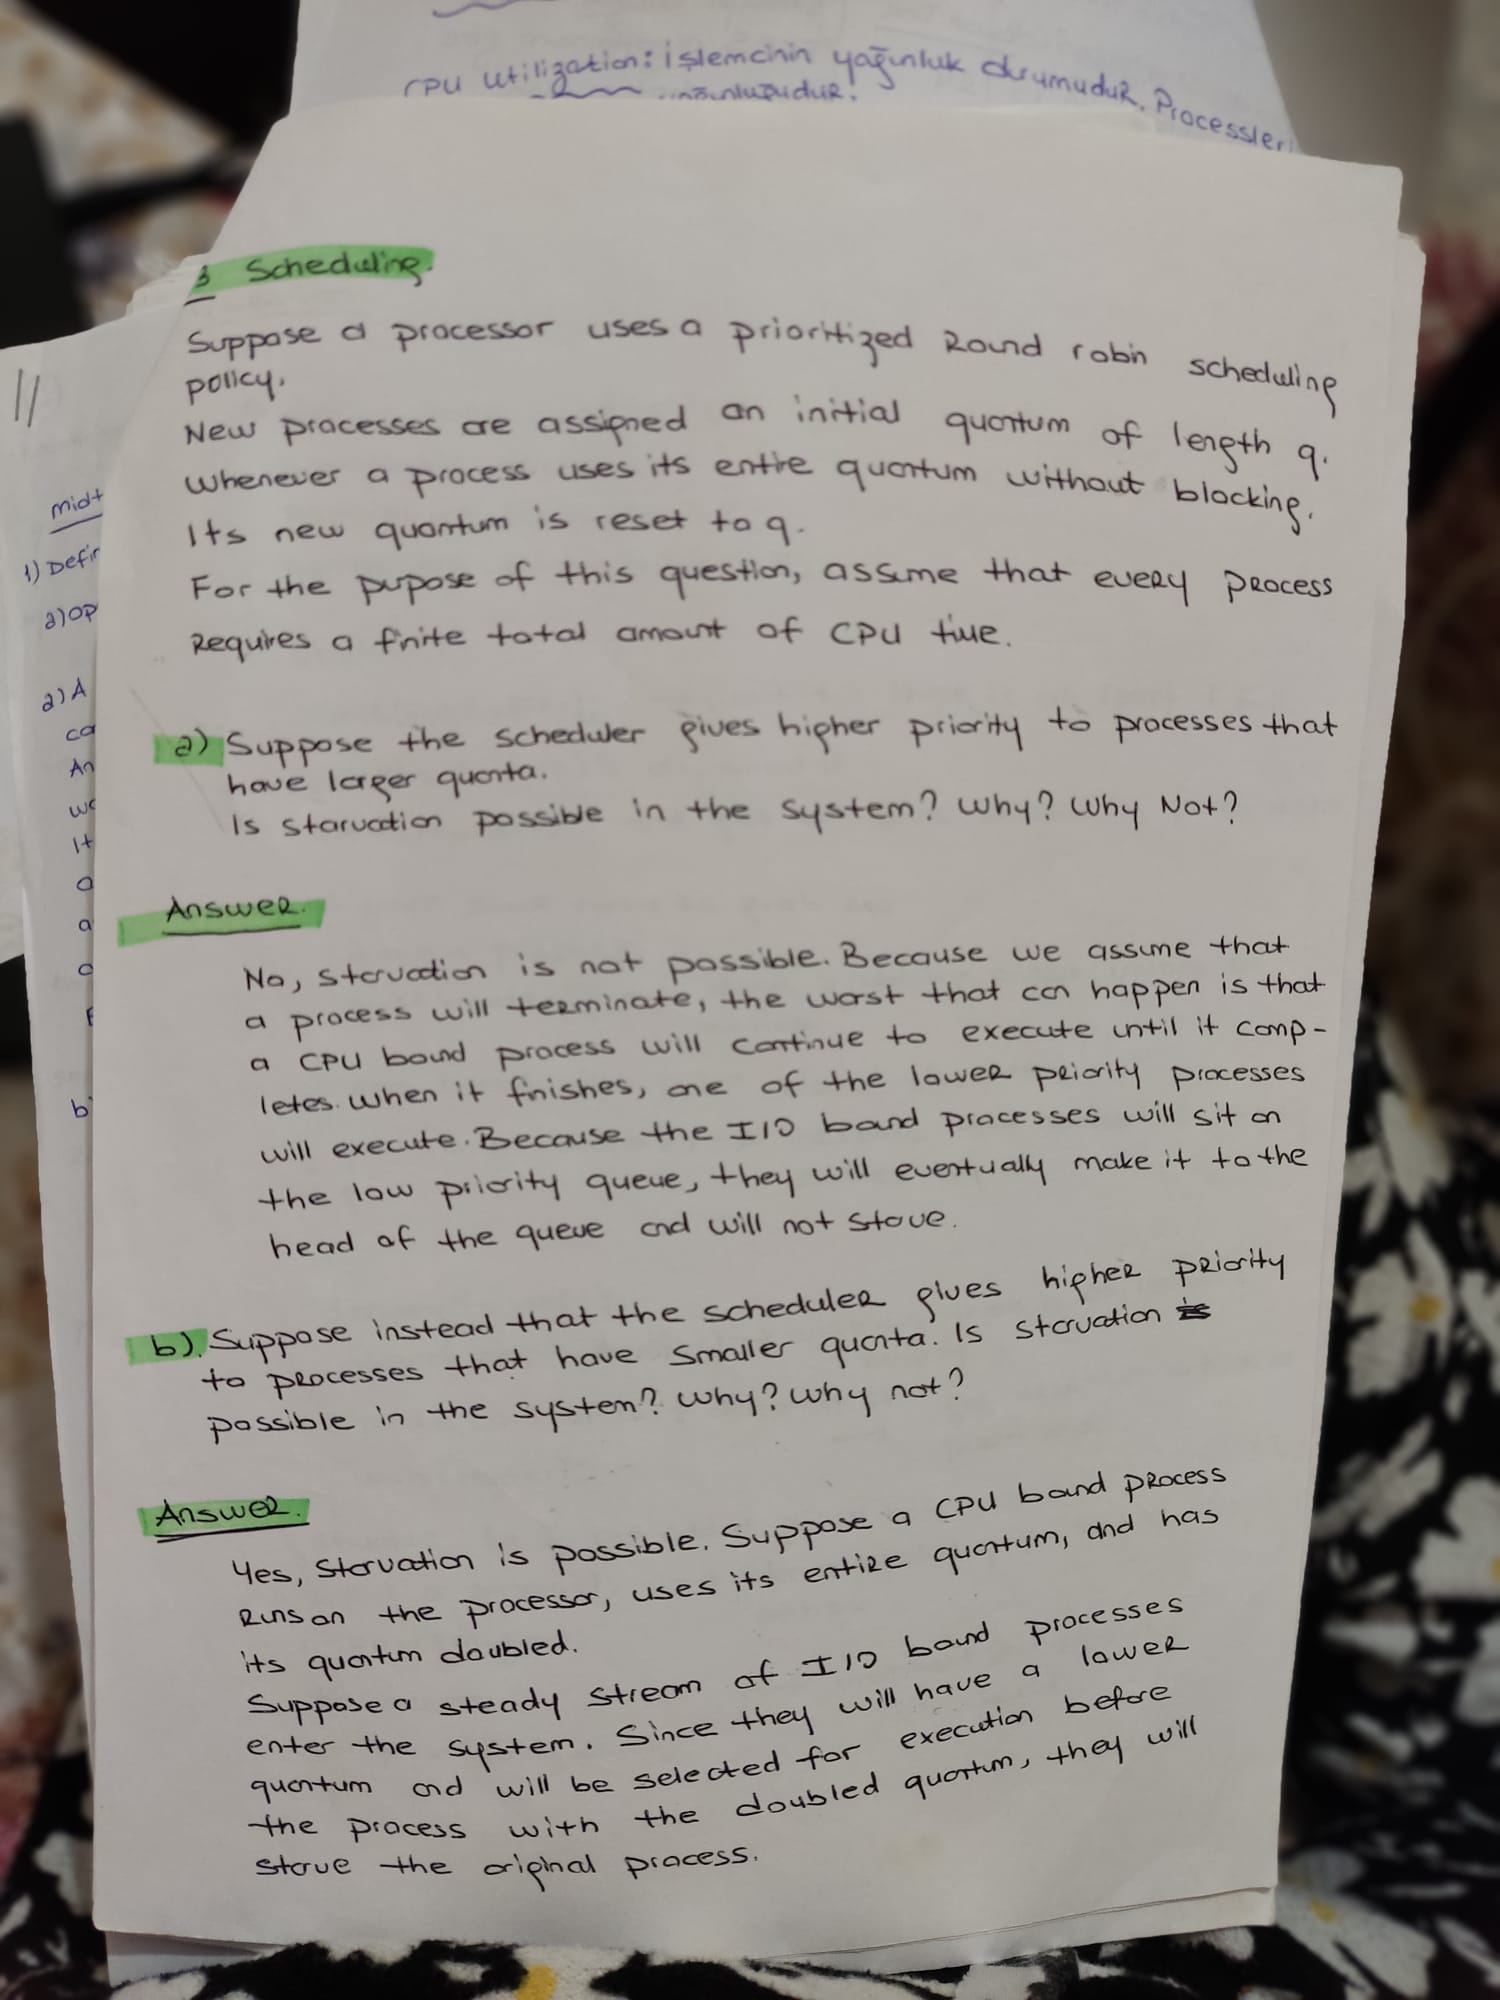 CPU utilization: işlemcinin yoğunluk durumudur. Processleri
yoğunluğudur.
3 Scheduling.
Suppose a processor uses a prioritized Round robin scheduling
policy.
New processes are assigned an initial quantum of length q.
Whenever a process uses its entire quantum without blocking.
Its new quantum is reset to q.
For the pupose of this question, assume that every process
Requires a finite total amount of CPU time.
a) Suppose the scheduler gives higher priority to processes that
have larger quanta.
Is starvation possible in the system? Why? Why Not?
Answer.
No, starvation is not possible. Because we assume that
a process will terminate, the worst that can happen is that
a CPU bound process will continue to execute until it comp-
letes. When it finishes, one of the lower priority processes
will execute. Because the I/O bound processes will sit on
the low priority queue, they will eventually make it to the
head of the queue and will not stave.
b). Suppose instead that the scheduler gives higher priority
to processes that have smaller quanta. Is starvation is
possible in the system? Why? Why not?
Answer.
Yes, starvation is possible. Suppose a CPU bound process
Runs on the processor, uses its entire quantum, and has
its quantum doubled.
Suppose a steady stream of I/O bound processes
enter the system. Since they will have a lower
quantum and will be selected for execution before
the process with the doubled quantum, they will
starve the original process.
11
midt
1) Defin
a) op
2) A
ca
An
wo
It
a
a
a
b)